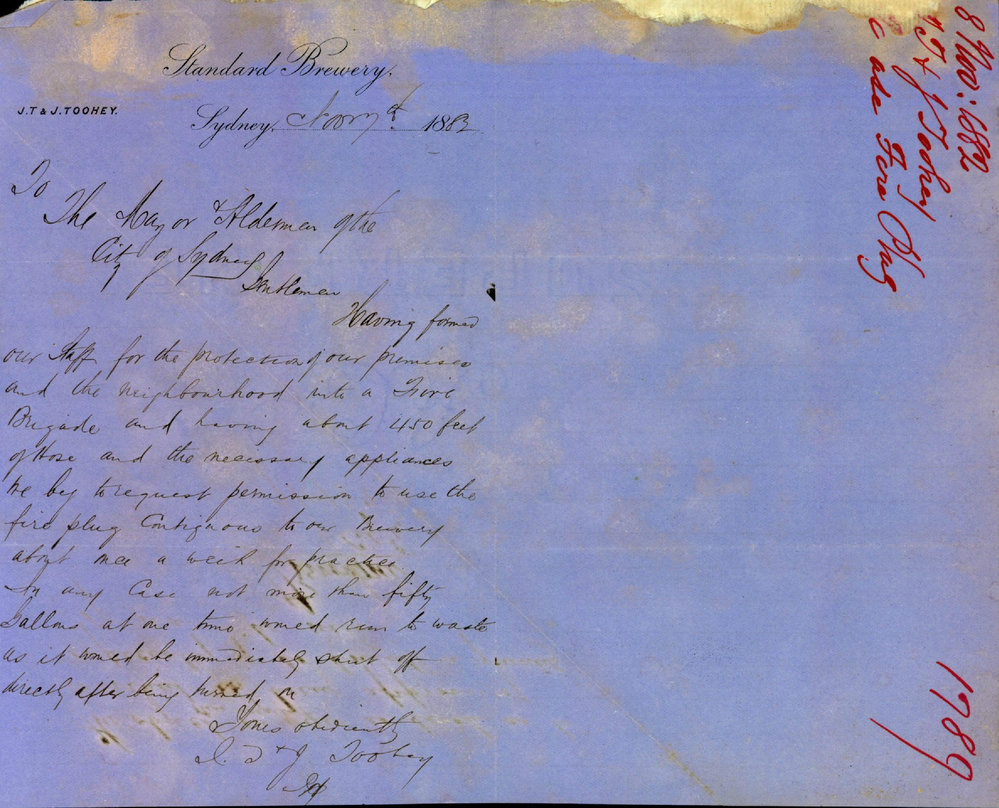 Standard Brewery.
J.T & J. TOOHEY.
Sydney, Nov 7th 1882
To
The Mayor & Aldermen of the
City of Sydney
Gentlemen
Having formed
our Staff for the protection of our premises
and the neighbourhood into a Fire
Brigade and having about 450 feet
of Hose and the necessary appliances
We beg to request permission to use the
fire plug Contiguous to our Brewery
about once a week for practice
In any Case not more than fifty
Gallons at one time would run to waste
as it would be immediately shut off
directly after being turned on
Yours obediently
J. T & J Toohey
8 Nov: 1882
J T & J Toohey
Fire Plug
1789